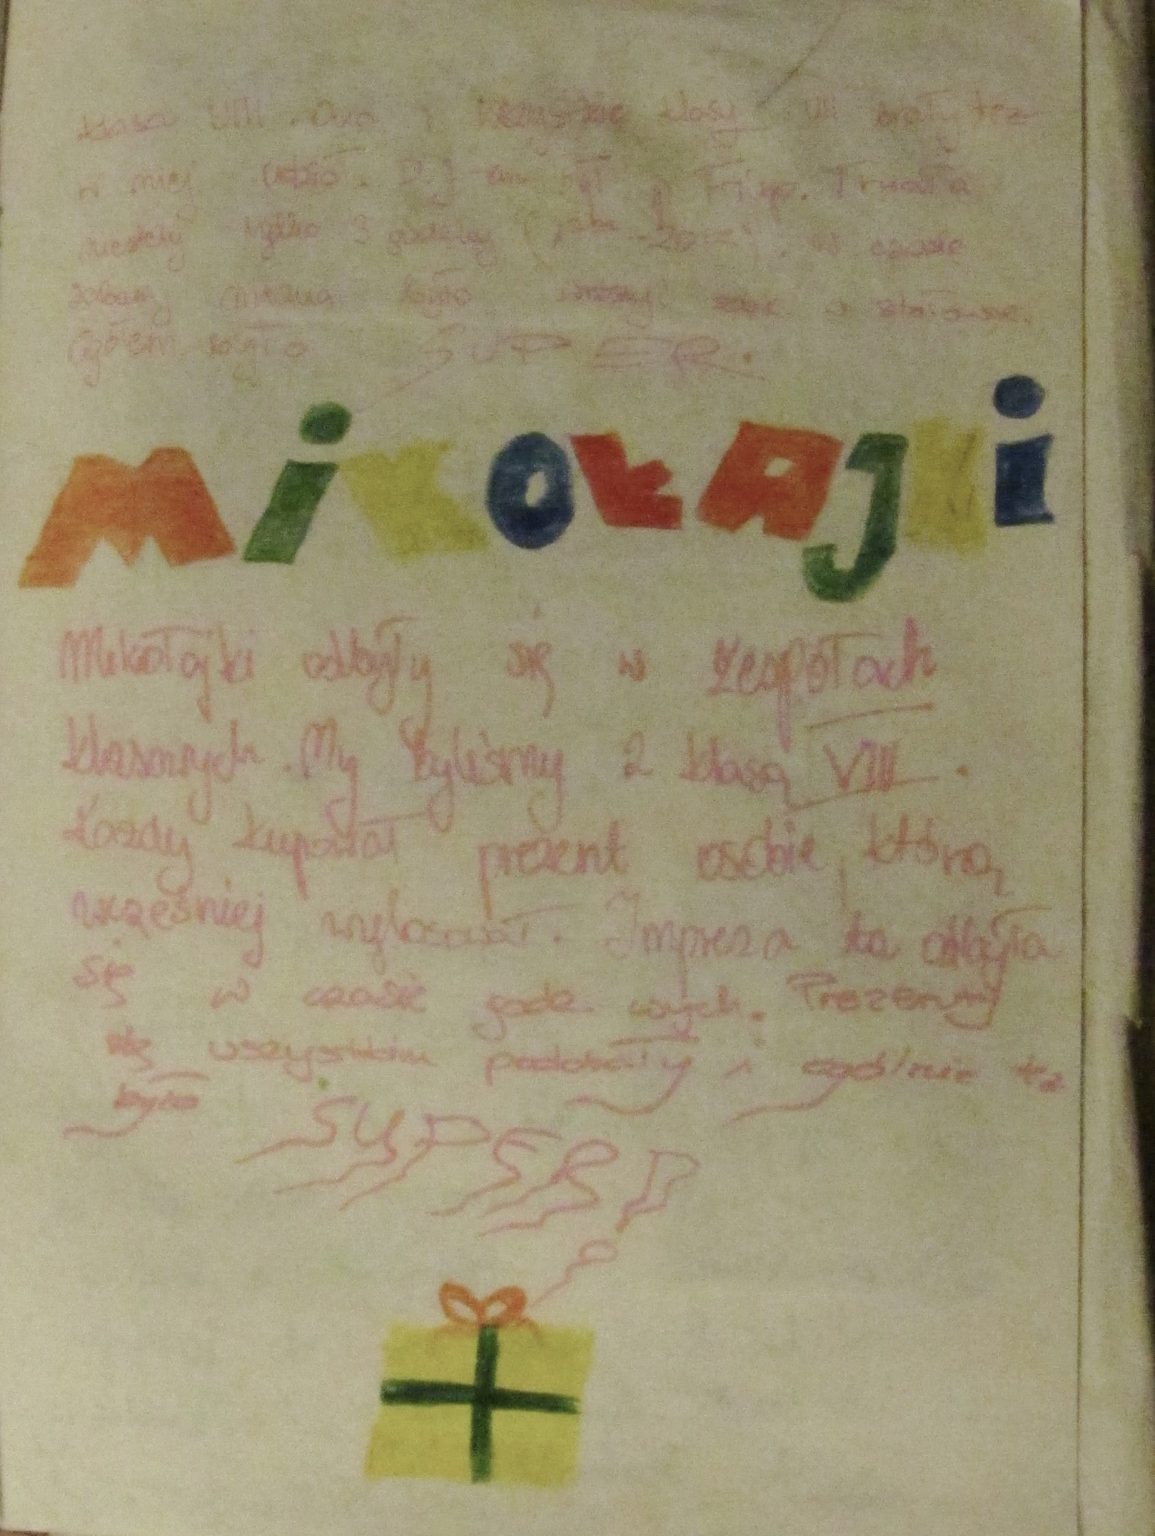 klasa VIII. Ona i wszystkie klasy VII brały też
w niej udział. D.J-em był p. Filip. Trwała
niestety tylko 3 godziny ( W czasie
zabawy można było w stołówce.
Ogółem było SUPER.
MiKOŁAJKi
Mikołajki odbyły się w zespołach
klasowych. My byliśmy z klasą VIII.
Każdy kupował prezent osobie, którą
wcześniej wylosował. Impreza ta odbyła
się w czasie godz. wych. Prezenty
się wszystkim podobały i ogólnie też
było
SUPER!